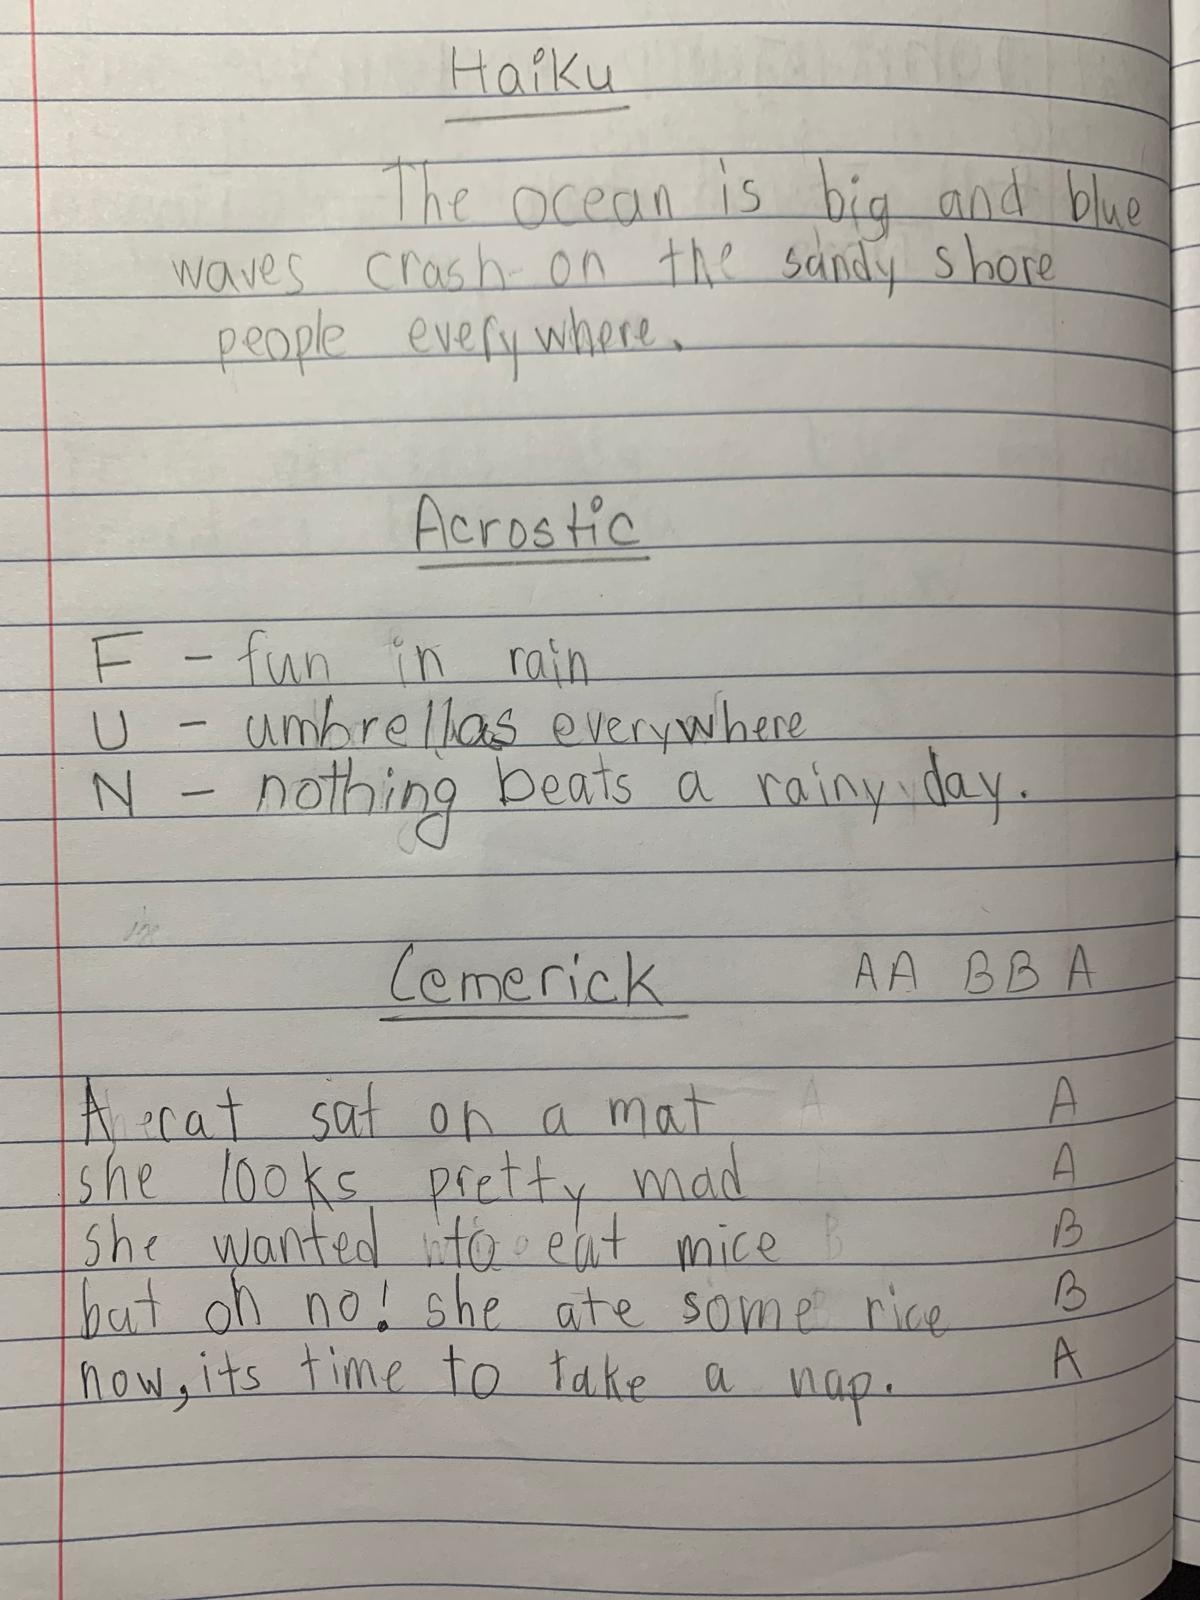 Haiku
The ocean is big and blue
waves crash on the sandy shore
people everywhere.
Acrostic
F - fun in rain
U - umbrellas everywhere
N - nothing beats a rainy day.
Lemerick AA BB A
A cat sat on a mat A
she looks pretty mad A
she wanted to eat mice B
but oh no! she ate some rice B
now, its time to take a nap. A